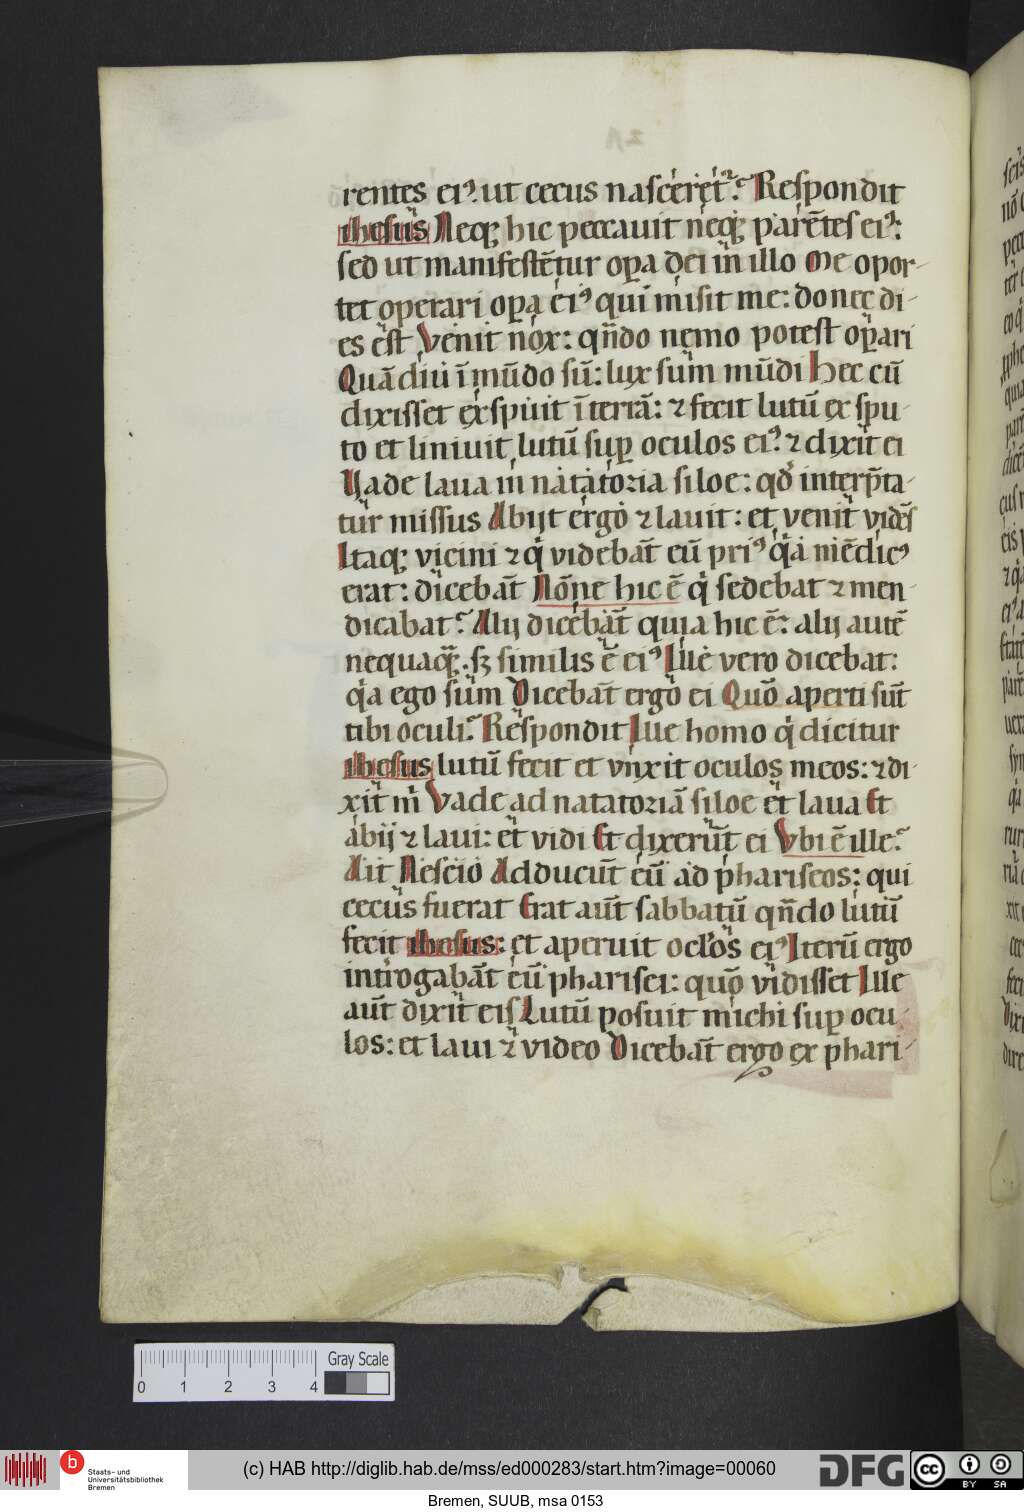 rentes ei⁹. ut cecus nasceret᷑.ˀ Respondit
ihesus Neq; hic peccauit neq; parētes ei⁹:
sed ut manifestētur oꝑa dei in illo Me opor-
tet operari oꝑa ei⁹ qui misit me: donec di-
es est Venit nox: qn̄do nemo potest oꝑari
Quādiu ī mūdo sū: lux sum mūdi Hec cū
dixisset exspuit ī terrā: ⁊ fecit lutū ex spu-
to et liniuit lutū suꝑ oculos ei⁹: ⁊ dixit ei
Vade laua in natatoria siloe: qd̓ interp̄ta-
tur missus Abijt ergo ⁊ lauit: et venit vidēs
Itaq; vicini ⁊ qͥ videbāt eū pri⁹ qͣa mēdic⁹
erat: dicebāt Nōne hic ē qͥ sedebat ⁊ men-
dicabat.ˀ Alij dicebāt quia hic ē: alij autē
nequaq̄;. sꝫ similis ē ei⁹ Ille vero dicebat:
qͣa ego sum Dicebāt ergo ei Quō aperti sūt
tibi oculi.ˀ Respondit Ille homo qͥ dicitur
ihesus lutū fecit et vnxit oculos meos: ⁊ di-
xit mͥ Vade ad natatoriā siloe et laua Et
abij ⁊ laui: et vidi Et dixerūt ei Vbi ē ille.ˀ
Ait Nescio Adducūt eū ad phariseos: qui
cecus fuerat Erat aūt sabbatū qn̄do lutū
fecit ihesus: et aperuit ocl̓os ei⁹ Iterū ergo
int̓rogabāt eū pharisei: quō vidisset Ille
aūt dixit eis Lutū posuit michi suꝑ ocu-
los: et laui ⁊ video Dicebāt ergo ex phari-
0 1 2 3 4 Gray Scale
b Staats- und
Universitätsbibliothek
Bremen
(c) HAB http://diglib.hab.de/mss/ed000283/start.htm?image=00060
DFG
cc BY SA
Bremen, SUUB, msa 0153